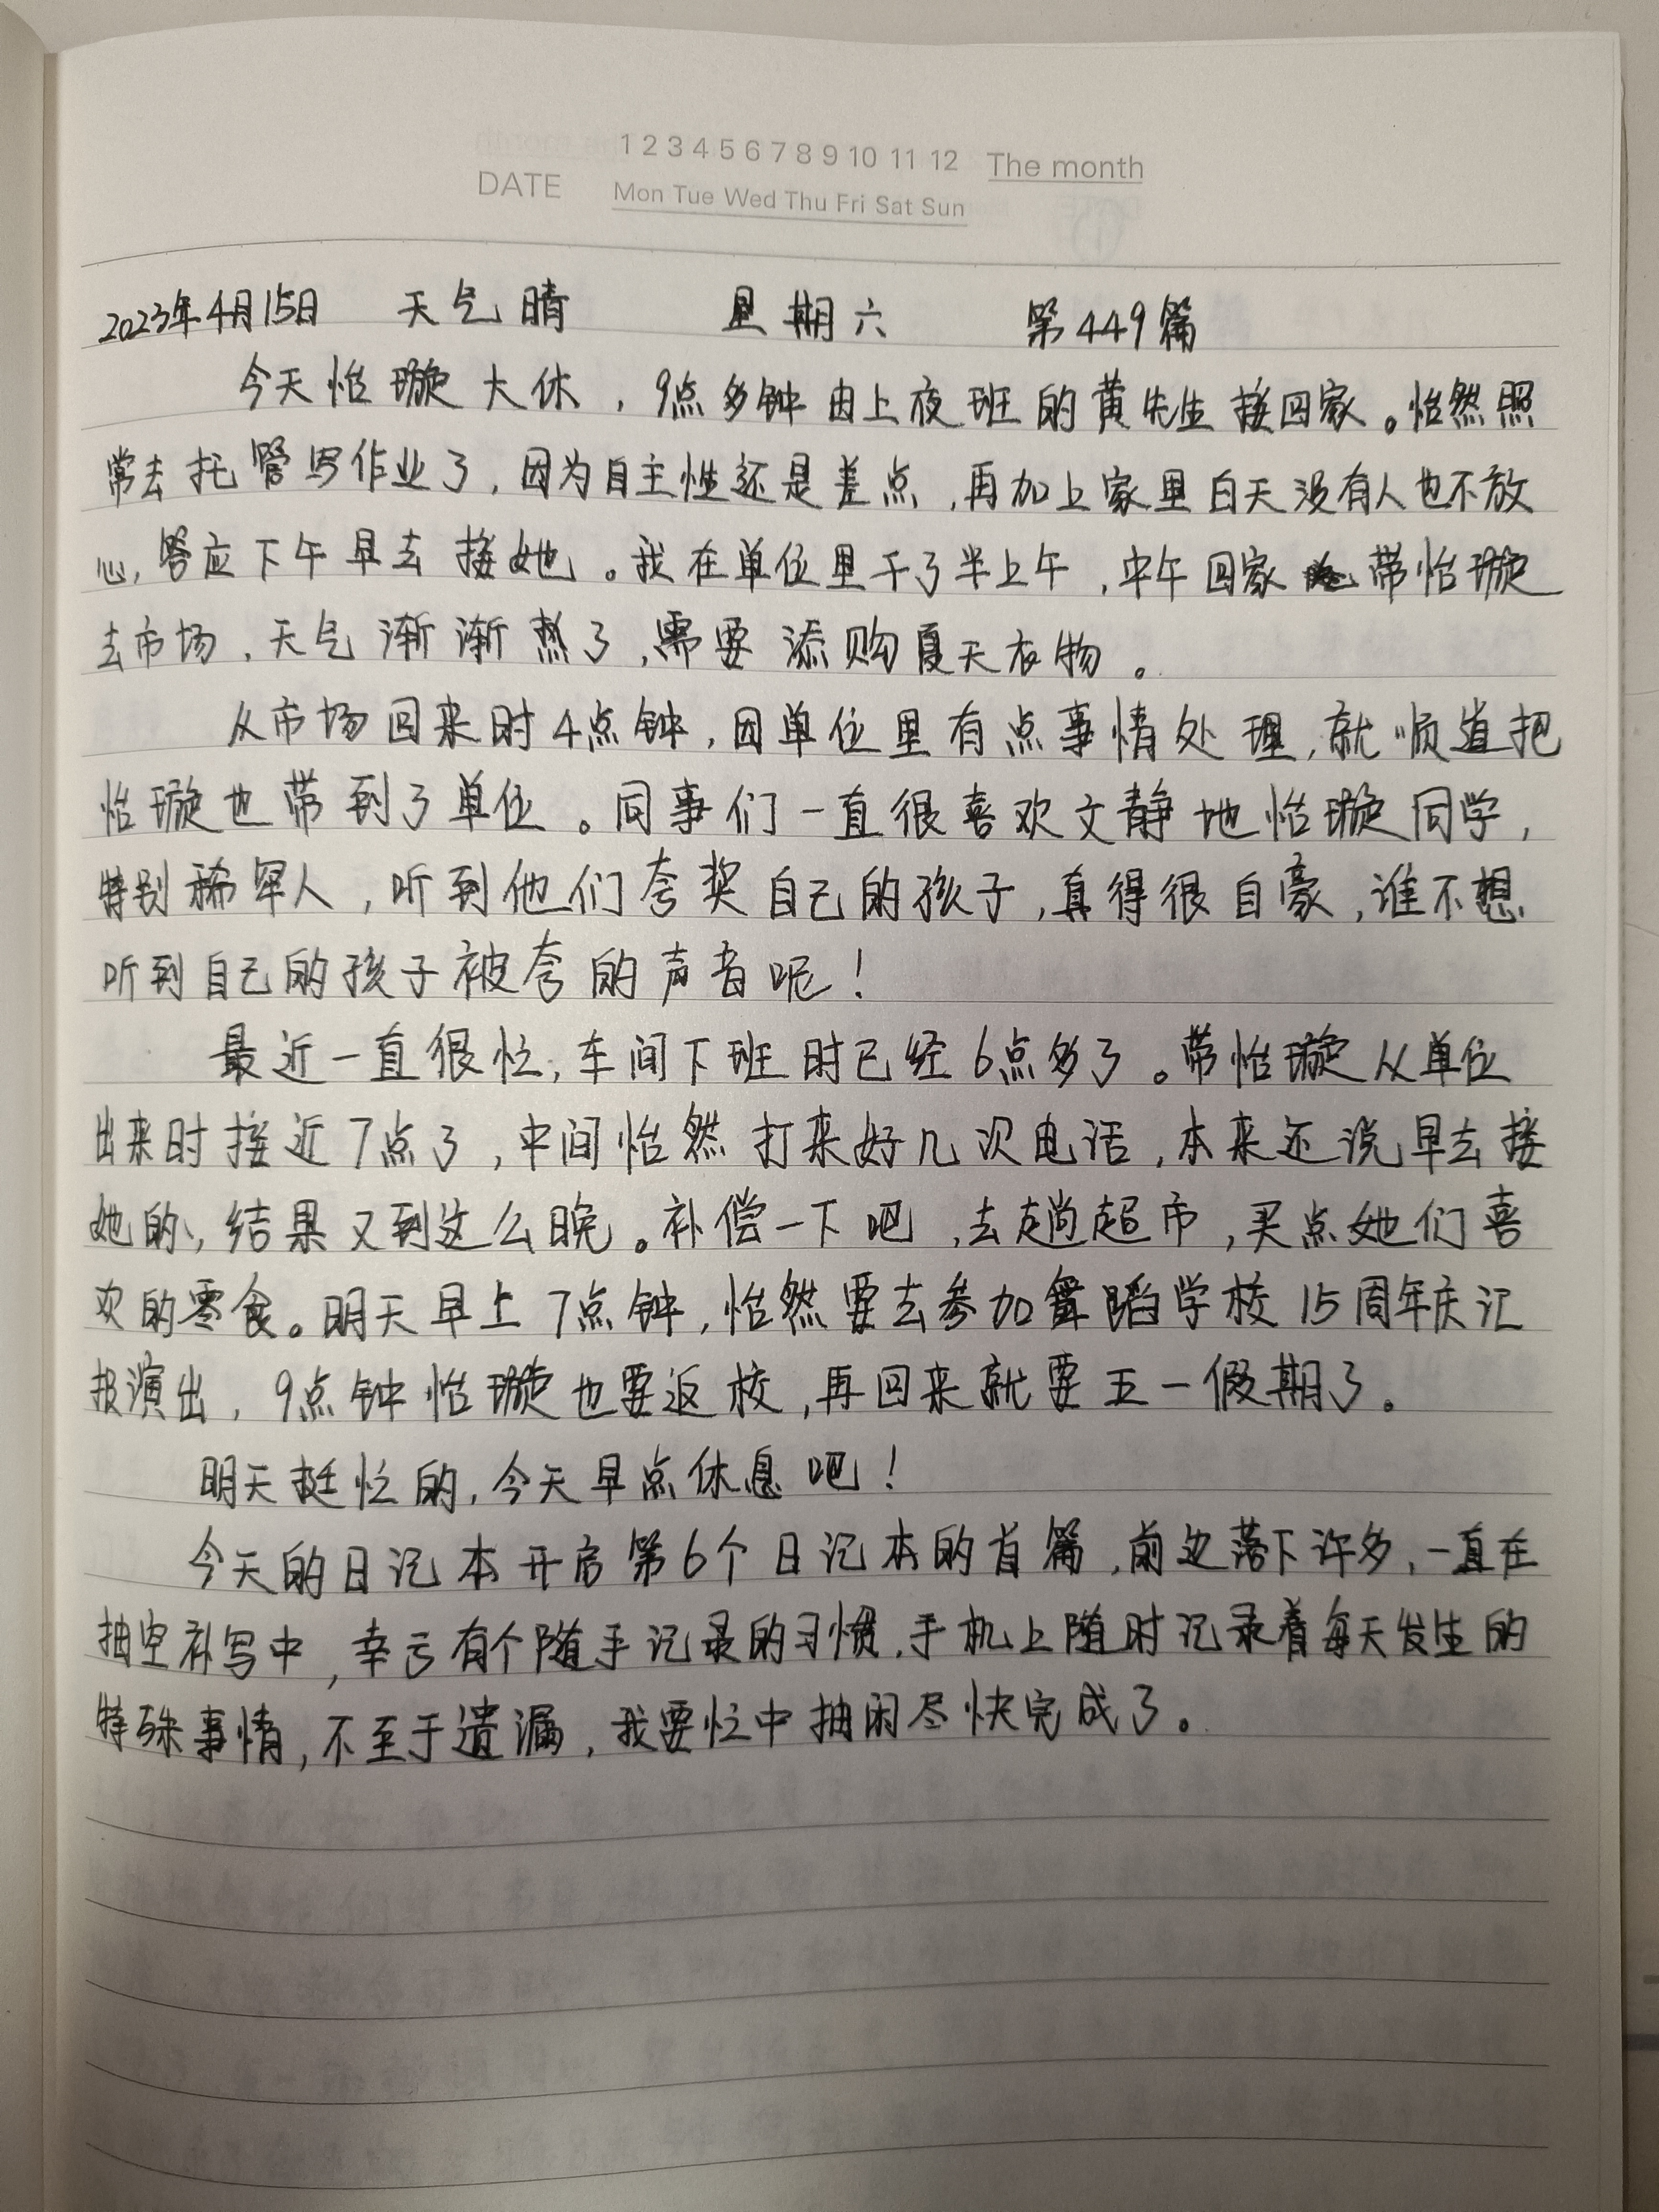 1 2 3 4 5 6 7 8 9 10 11 12 The month
DATE Mon Tue Wed Thu Fri Sat Sun
2023年4月15日 天气晴 星期六 第449篇
今天怡璇大休，9点多钟由上夜班的黄先生接回家。怡然照
常去托管写作业了，因为自主性还是差点，再加上家里白天没有人也不放
心，答应下午早去接她。我在单位里干了半上午，中午回家带怡璇
去市场，天气渐渐热了，需要添购夏天衣物。
从市场回来时4点钟，因单位里有点事情处理，就顺道把
怡璇也带到了单位。同事们一直很喜欢文静地怡璇同学，
特别稀罕人，听到他们夸奖自己的孩子，真得很自豪，谁不想
听到自己的孩子被夸的声音呢！
最近一直很忙，车间下班时已经6点多了。带怡璇从单位
出来时接近7点了，中间怡然打来好几次电话，本来还说早去接
她的，结果又到这么晚。补偿一下吧，去趟超市，买点她们喜
欢的零食。明天早上7点钟，怡然要去参加舞蹈学校15周年庆汇
报演出，9点钟怡璇也要返校，再回来就要五一假期了。
明天挺忙的，今天早点休息吧！
今天的日记本开启第6个日记本的首篇，前边落下许多，一直在
抽空补写中，幸亏有个随手记录的习惯，手机上随时记录着每天发生的
特殊事情，不至于遗漏，我要忙中抽闲尽快完成了。